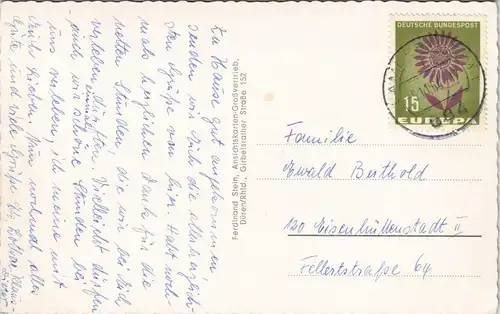 Zu Hause gut angekommen
senden wir Euch die allerherzlich-
sten Grüße von hier. Habt noch-
mals herzlichen Dank für die
netten Stunden, die wir bei Euch
verleben durften. Vielleicht dürfen
auch wir einmal schöne Stunden bei
uns verleben, ich meine mit
Euch Lieben. Nun nochmal alles
Gute und viele Grüße
Ferdinand Stein, Ansichtskarten-Großvertrieb,
Düren/Rhld., Girbelsrather Straße 152
DEUTSCHE BUNDESPOST
15
EUROPA
Familie
Ewald Berthold
120 Eisenhüttenstadt II
Fellertstraße 64